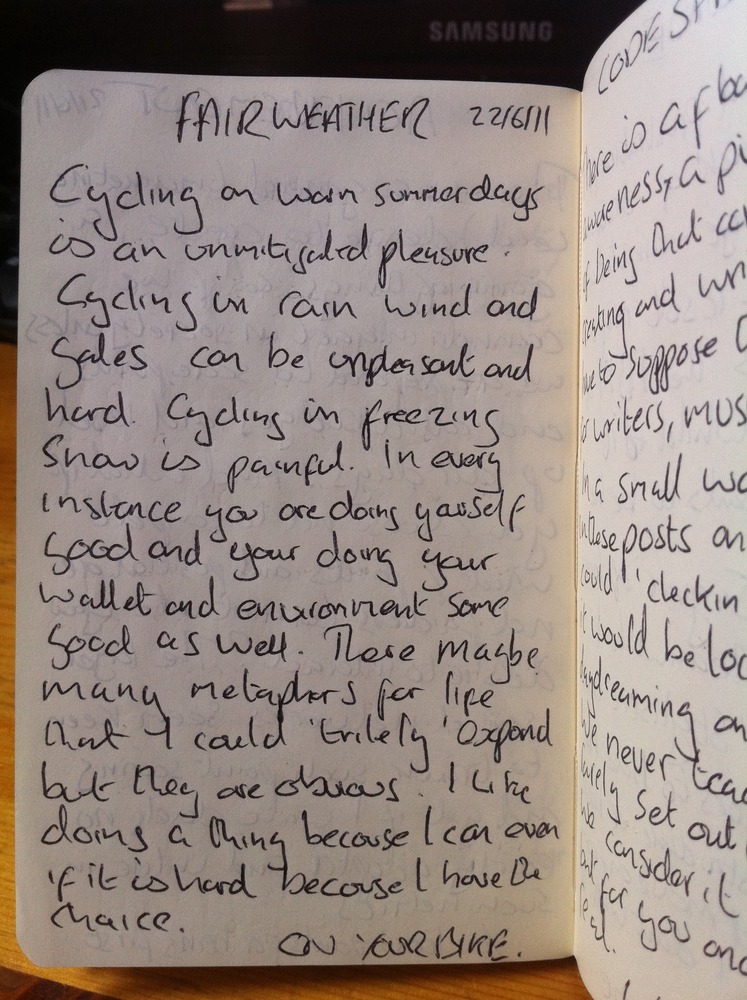 SAMSUNG
FAIRWEATHER 22/6/11
Cycling on warm summer days
is an unmitigated pleasure.
Cycling in rain wind and
gales can be unpleasant and
hard. Cycling in freezing
Snow is painful. In every
instance you are doing yourself
good and your doing your
wallet and environment some
good as well. There maybe
many metaphors for life
that I could 'tritely' expand
but they are obvious. I like
doing a thing because I can even
if it is hard because I have the
choice.
ON YOUR BIKE.
CODE
here is a f
awareness, a
f being that
and
to suppose
writers, mus
a small
these posts an
could 'checkin
t would be loc
daydreaming on
We never
rarely set out
we consider it
for you and